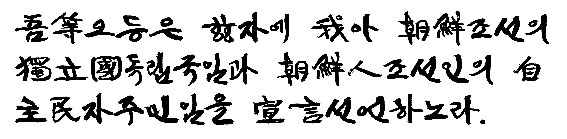 吾等오등은 玆자에 我아 朝鮮조선의
獨立國독립국임과 朝鮮人조선인의 自
主民자주민임을 宣言선언하노라.